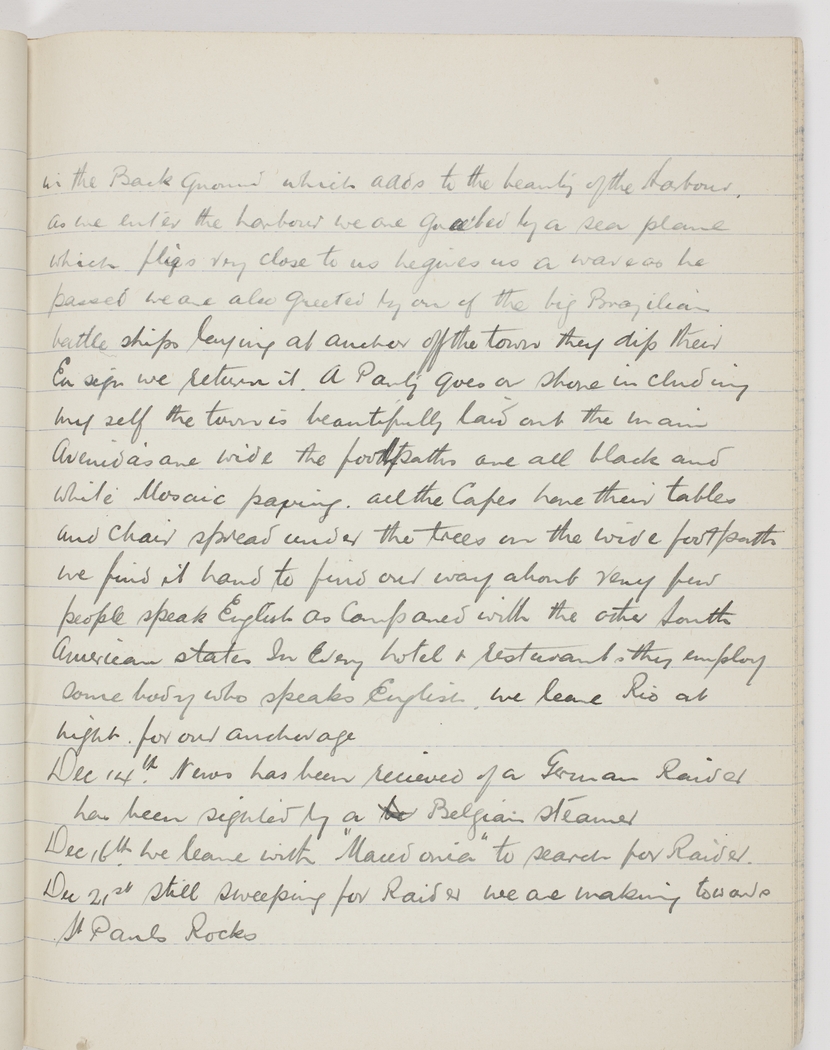 in the Back Ground which adds to the beauty of the Harbour,
as we enter the harbour we are greeted by a sea plane
which flies very close to us he gives us a wave as he
passed we are also Greeted by one of the big Brazilian
battle ships laying at anchor off the town they dip their
Ensign we return it. A Party goes on shore including
my self the town is beautifully laid out the main
Avenida's are wide the footpaths are all black and
white Mosaic paving. all the Cafes have their tables
and chair spread under the trees on the wide footpath
we find it hard to find our way about very few
people speak English as Compared with the other South
American states In Every hotel & resturant s they employ
some body who speaks English, we leave Rio at
night. for our anchorage
Dec 14th. News has been recieved of a German Raider
has been sighted by a Belgian steamer
Dec 16th. we leave with "Macedonia" to search for Raider.
Dec 21st still sweeping for Raider we are making towards
St Pauls Rocks